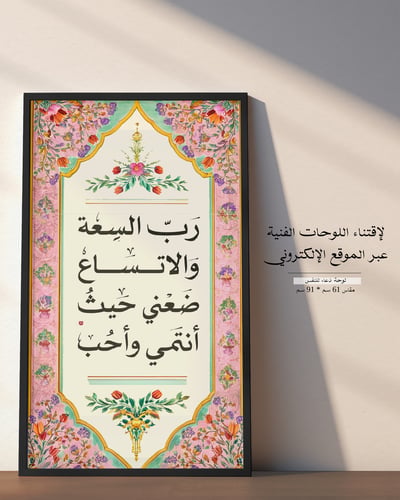 رَبّ السِعة
والاتساع
ضَعْني حَيثُ
أنتمي وأحُب
لإقتناء اللوحات الفنية
عبر الموقع الإلكتروني
لوحة دعاء للنفس
مقاس 61 سم * 91 سم